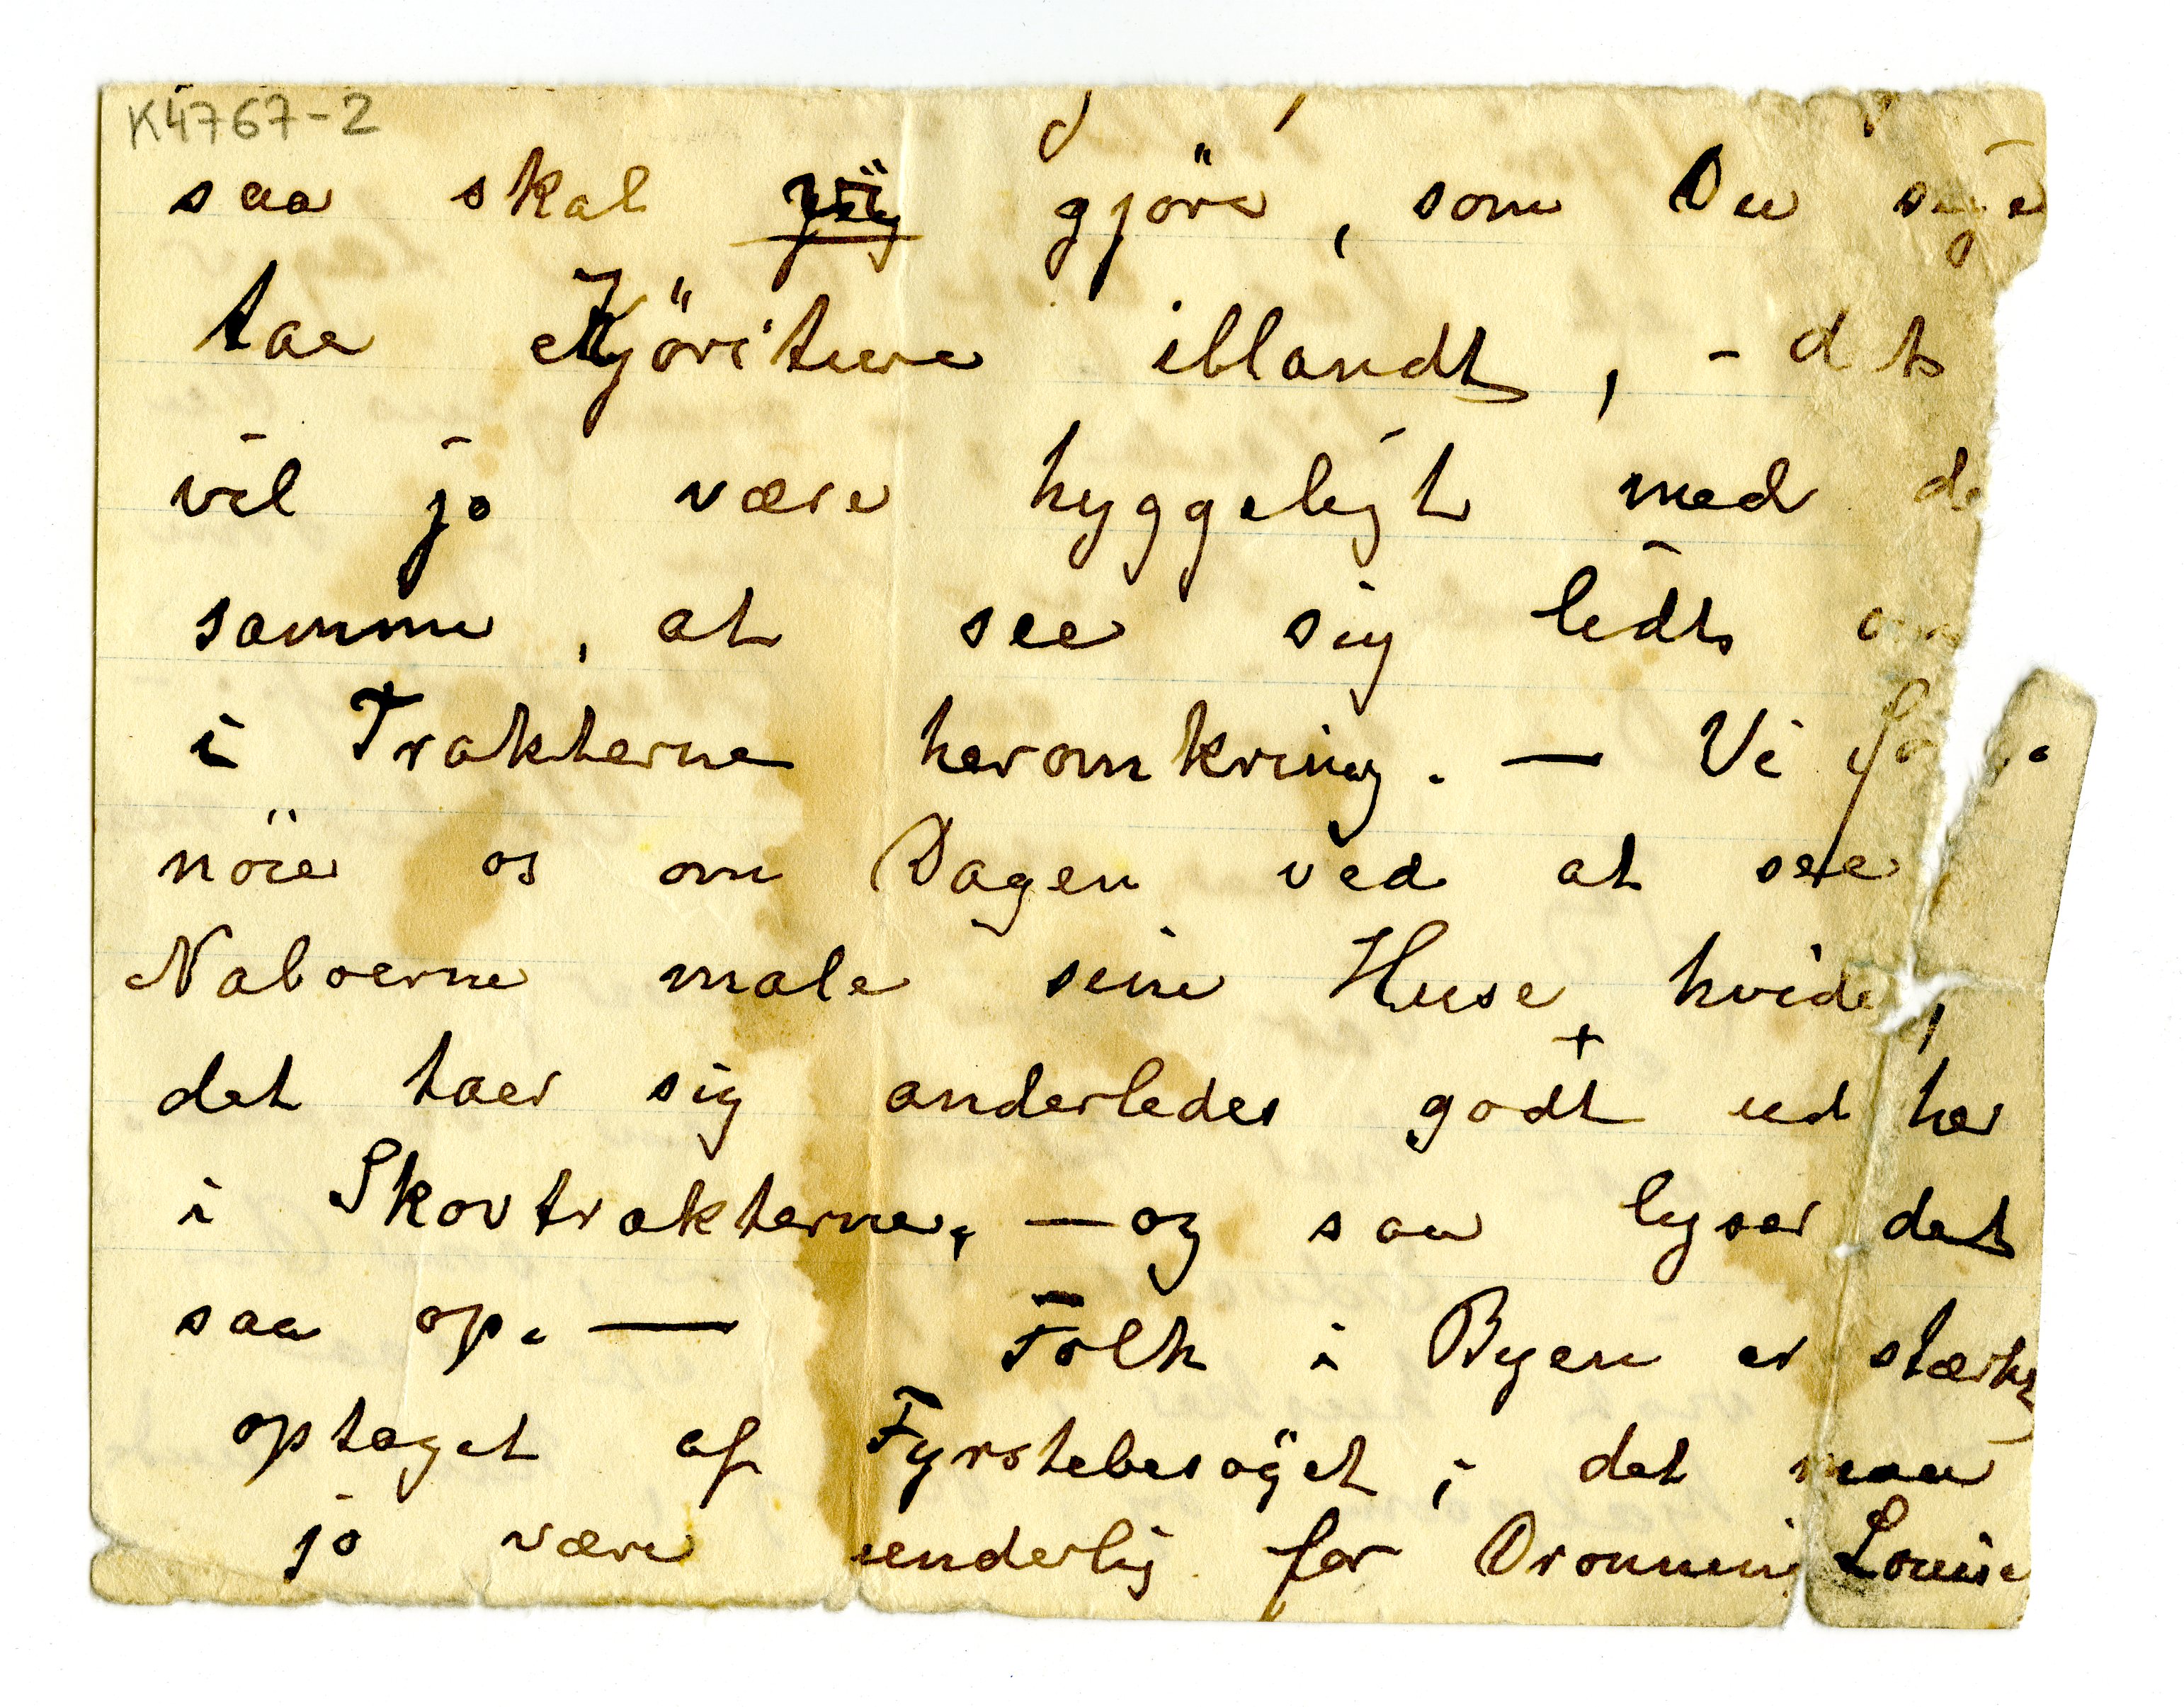 K4767-2
saa skal gjöre, som Du sige
taa Kjöriture iblandt, - det
vil jo være hyggeligt med de
samme, at see sig lidt om
i Trakterne heromkring. — Vi
nöie os om Dagen ved at see
Naboerne male sine Huse hvide,
det taer sig anderledes godt ud her
i Skovtrakterne, — og saa lyser det
saa op. — Folk i Byen er stærkt
optaget af Fyrstebesöget, det maa
jo være underlig for Dronning Louise